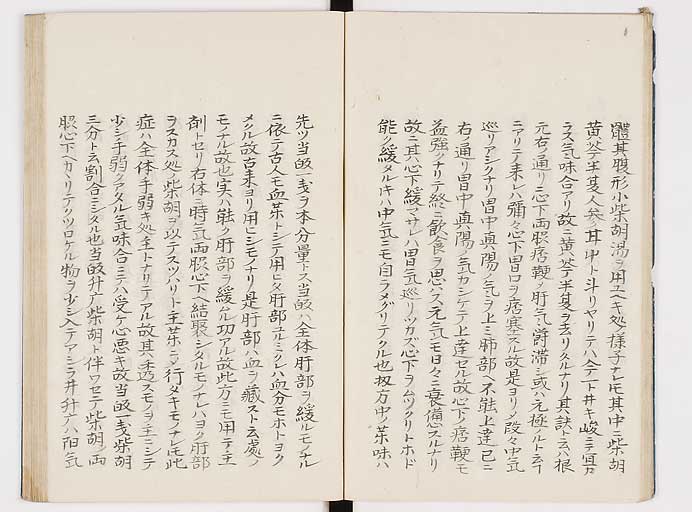 體其腹形小柴胡湯ヲ用ユヘキ処ノ様子ナレモ其中ニ柴胡
黄芩半夏人参甘中ト斗リヤリテハ今一ト井キ峻ニテ宜カ
ラス気味合アリ故ニ黄芩半夏ヲ去リタルナリ其訣ト云ハ根
元右ノ通リニ心下両脇痞鞕ノ肝気欝滞シ或ハ元極ルト云
ニアリテ来レハ弥々心下胃口ヲ痞塞スル故是ヨリメ段々中気
巡リアシクナリ胃中真陽ノ気ヲ上ミ肺部ヘ不能上達已ニ
右ノ通リ胃中真陽ノ気カシケテ上達セル故心下ノ痞鞕モ
益強クナリテ終ニ飲食ヲ思ハス元気モ日々ニ衰備スルナリ
故ニ其心下緩マサレハ胃気巡リツカズ心下ヲムツクリトホド
能ク緩タルキハ中気ニモ自ラメグリテクル也扨方中ノ薬味ハ
先ツ当皈一戔ヲ本分量トス当皈ハ全体肝部ヲ緩ルモノナル
ニ依テ古人モ血薬トシテ用ヒタ肝部ユルミクレハ血分モホトヨク
メクル故古来ヨリ用ヒシモノナリ是肝部ハ血ヲ蔵スト云処ノ
モノナル故也実ハ能ク肝部ヲ緩ムル功アル故此方ニモ用テ主
剤トセリ右体ニ時気両脇心下ヘ結聚シタルモノナレハヨク肝部
ヲスカス処ノ柴胡ヲ以テスツハリト主薬ニメ行タキモノナレモ此
症ハ全体手弱キ処主トナリテアル故其透スモノヲ手ニシテ
少シ手弱クアタル気味合ニテハ受ケ心悪キ故当皈一戔柴胡
三分ト云割合ニシタル也当皈升广柴胡ト伴ワセテ柴胡ノ両
脇心下ヘカヽリテクツロケル物ヲ少シ入テアシラ井升广ハ陽気